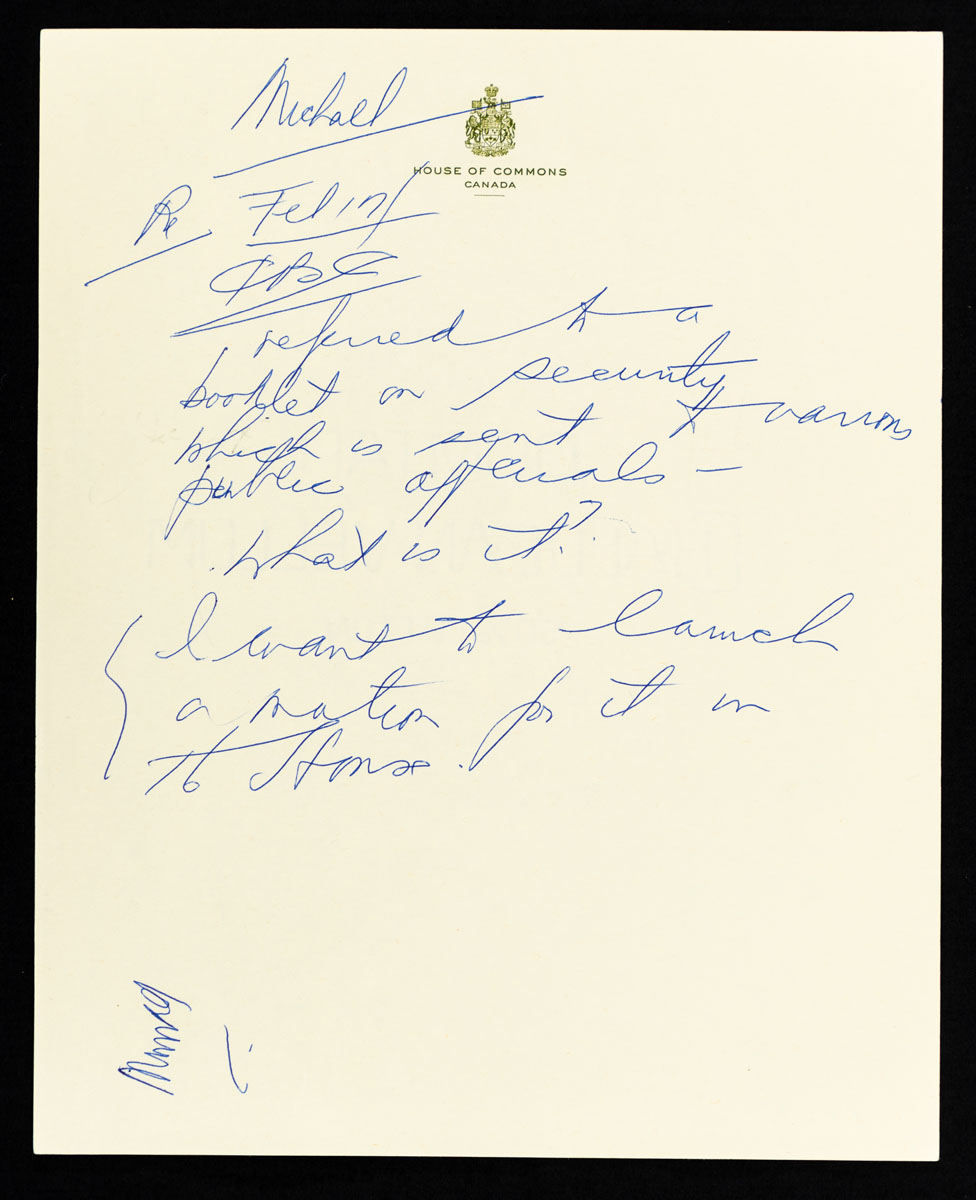 Michael
HOUSE OF COMMONS
CANADA
Re
CBC
referred to a
booklet on security
which is sent to various
public officials –
what is it?
I want to launch
a motion for it in
the House.